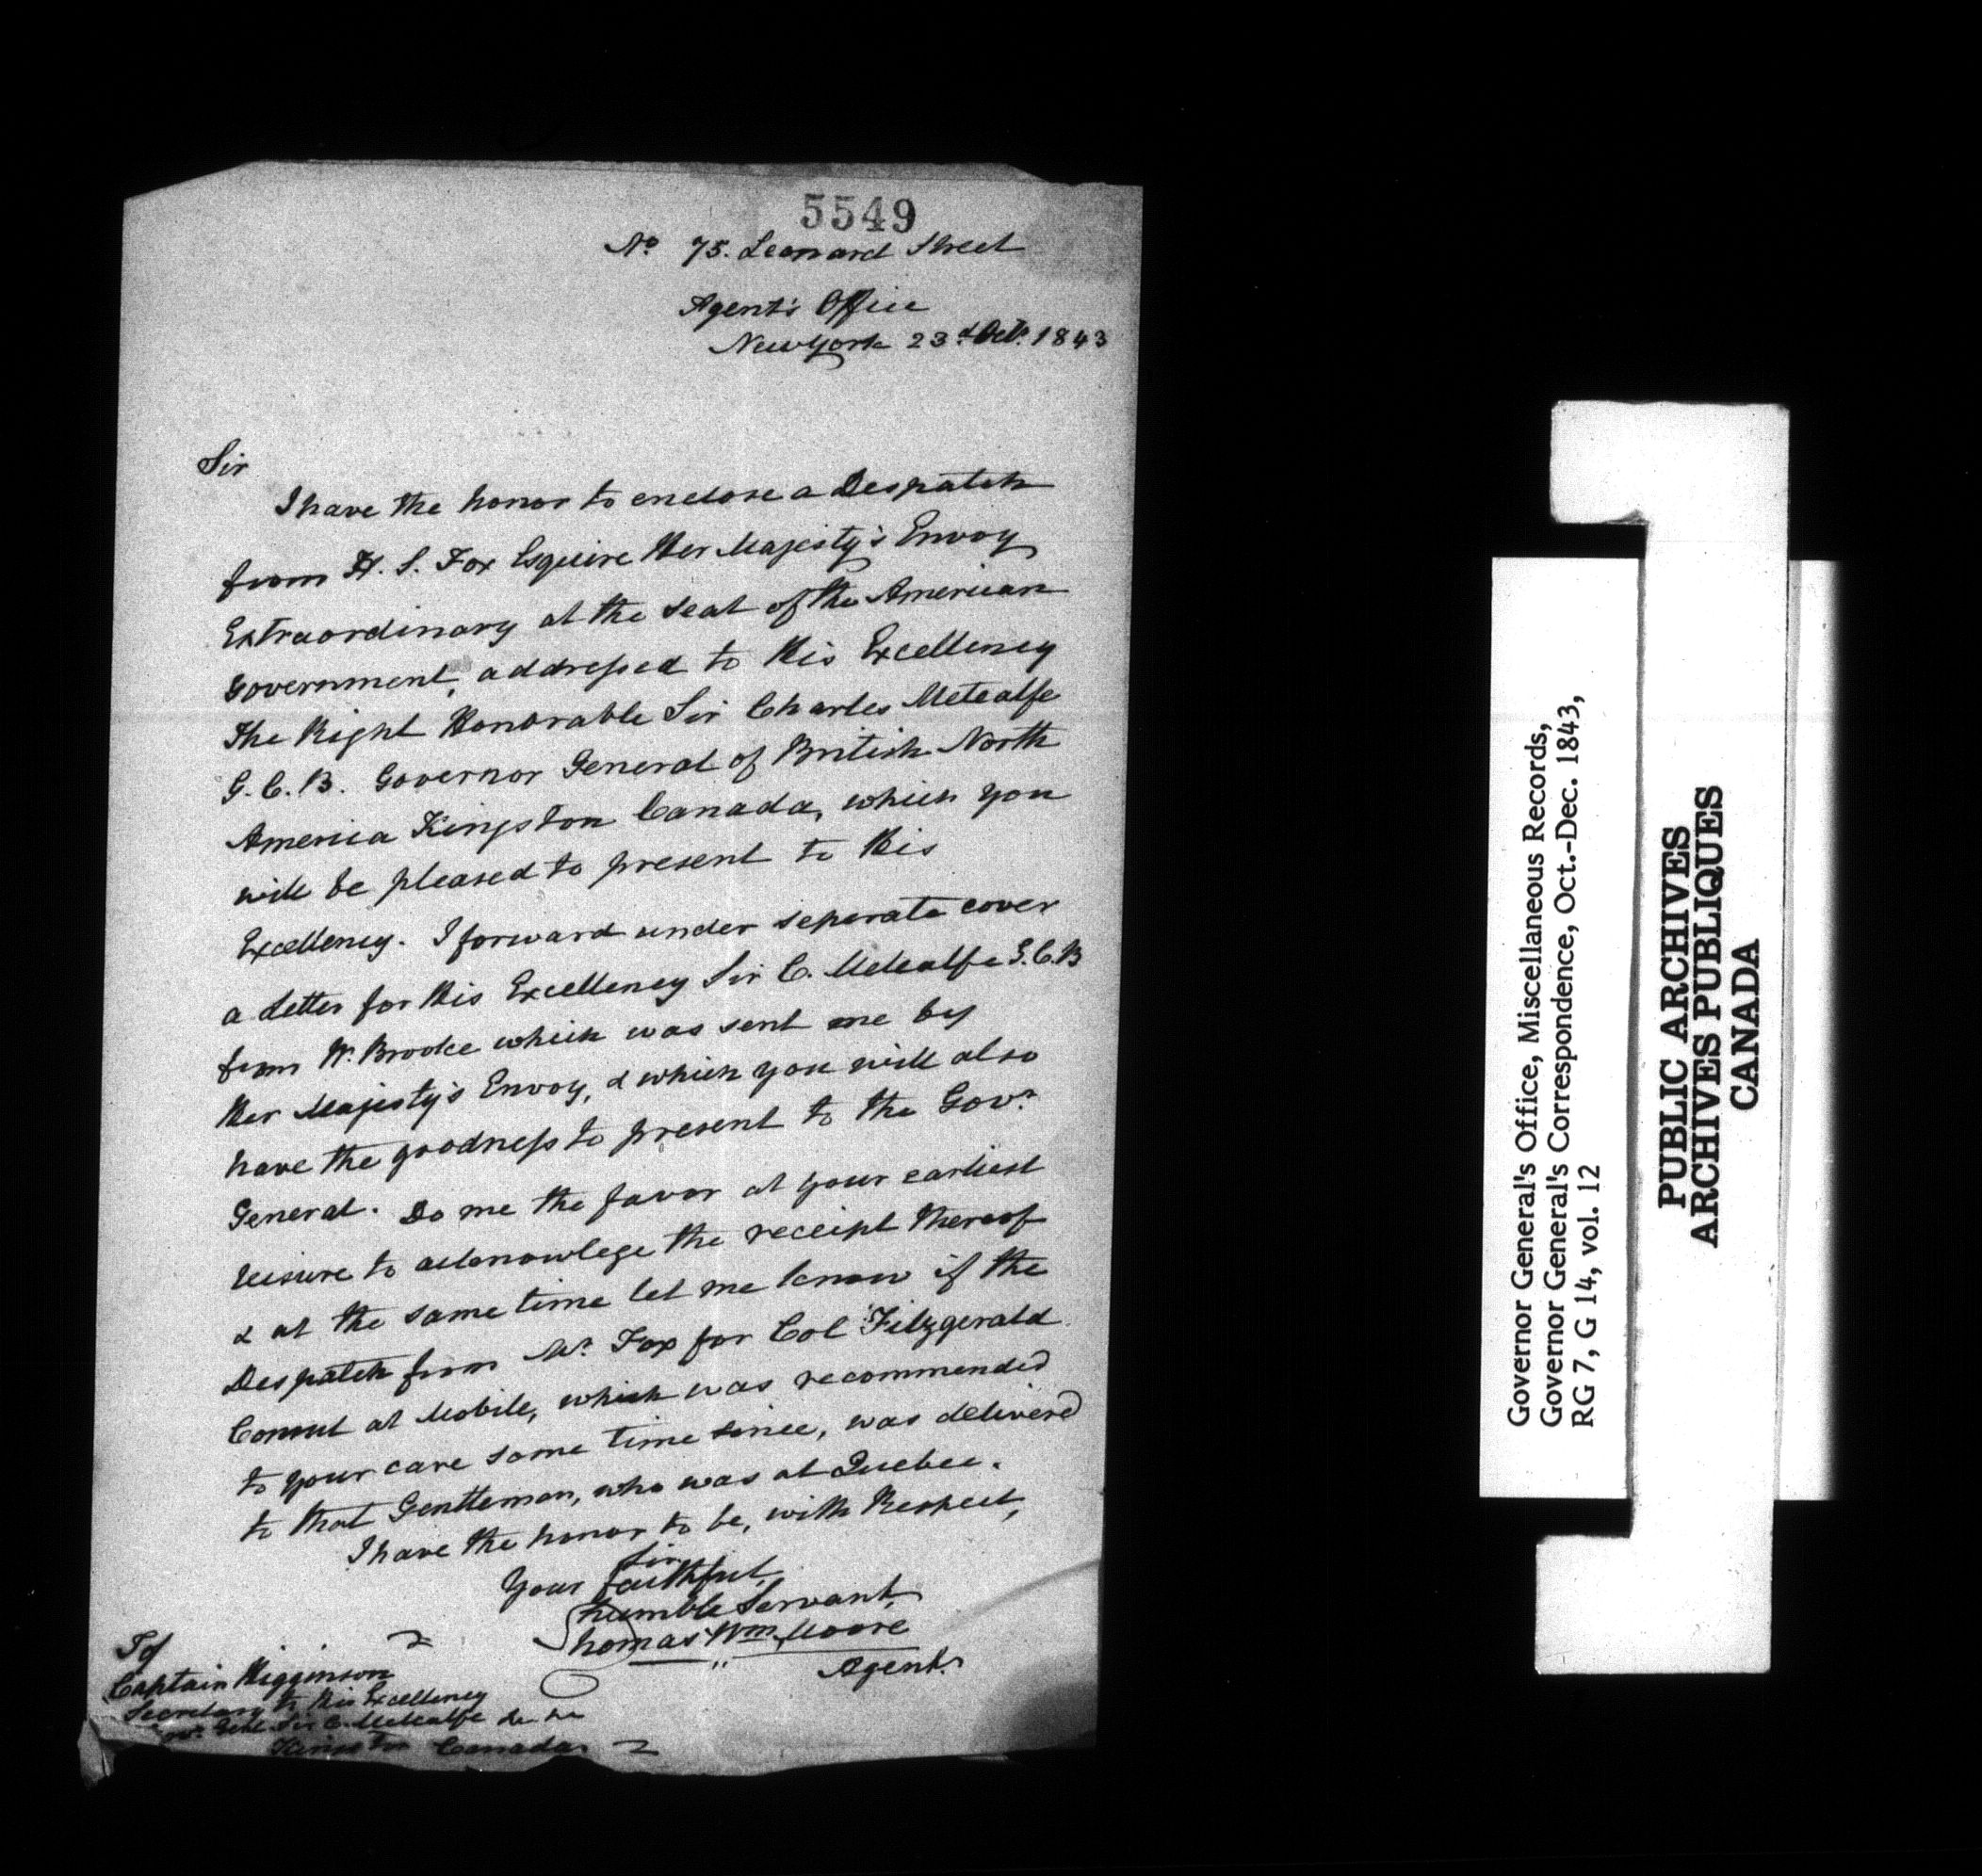 5549
No 75. Leonard Street
Agent's Office
New York 23d Octr. 1843
Sir
I have the honor to enclose a Despatch
from H. S. Fox Esquire Her Majesty's Envoy
Extraordinary at the seat of the American
Government, addressed to His Excellency
The Right Honorable Sir Charles Metcalfe
G.C.B. Governor General of British North
America Kingston Canada, which you
will be pleased to present to His
Excellency. I forward under seperate cover
a letter for His Excellency Sir C. Metcalfe G.C.B
from W. Brooke which was sent me by
Her Majesty's Envoy, & which you will also
have the goodness to present to the Govr.
General. Do me the favor at your earliest
leisure to acknowlege the receipt thereof
& at the same time let me know if the
Despatch from Mr. Fox for Col Fitzgerald
Consul at Mobile, which was recommended
to your care some time since, was delivered
to that Gentleman, who was at Quebec.
I have the honor to be, with Respect,
Sir
Your faithful,
humble Servant,
Thomas Wm. Moore
Agent.
To
Captain Higginson
Secretary to His Excellency
Govr. Genl. Sir C. Metcalfe
Kingston Canada
Governor General's Office, Miscellaneous Records,
Governor General's Correspondence, Oct.-Dec. 1843,
RG 7, G 14, vol. 12
PUBLIC ARCHIVES
ARCHIVES PUBLIQUES
CANADA